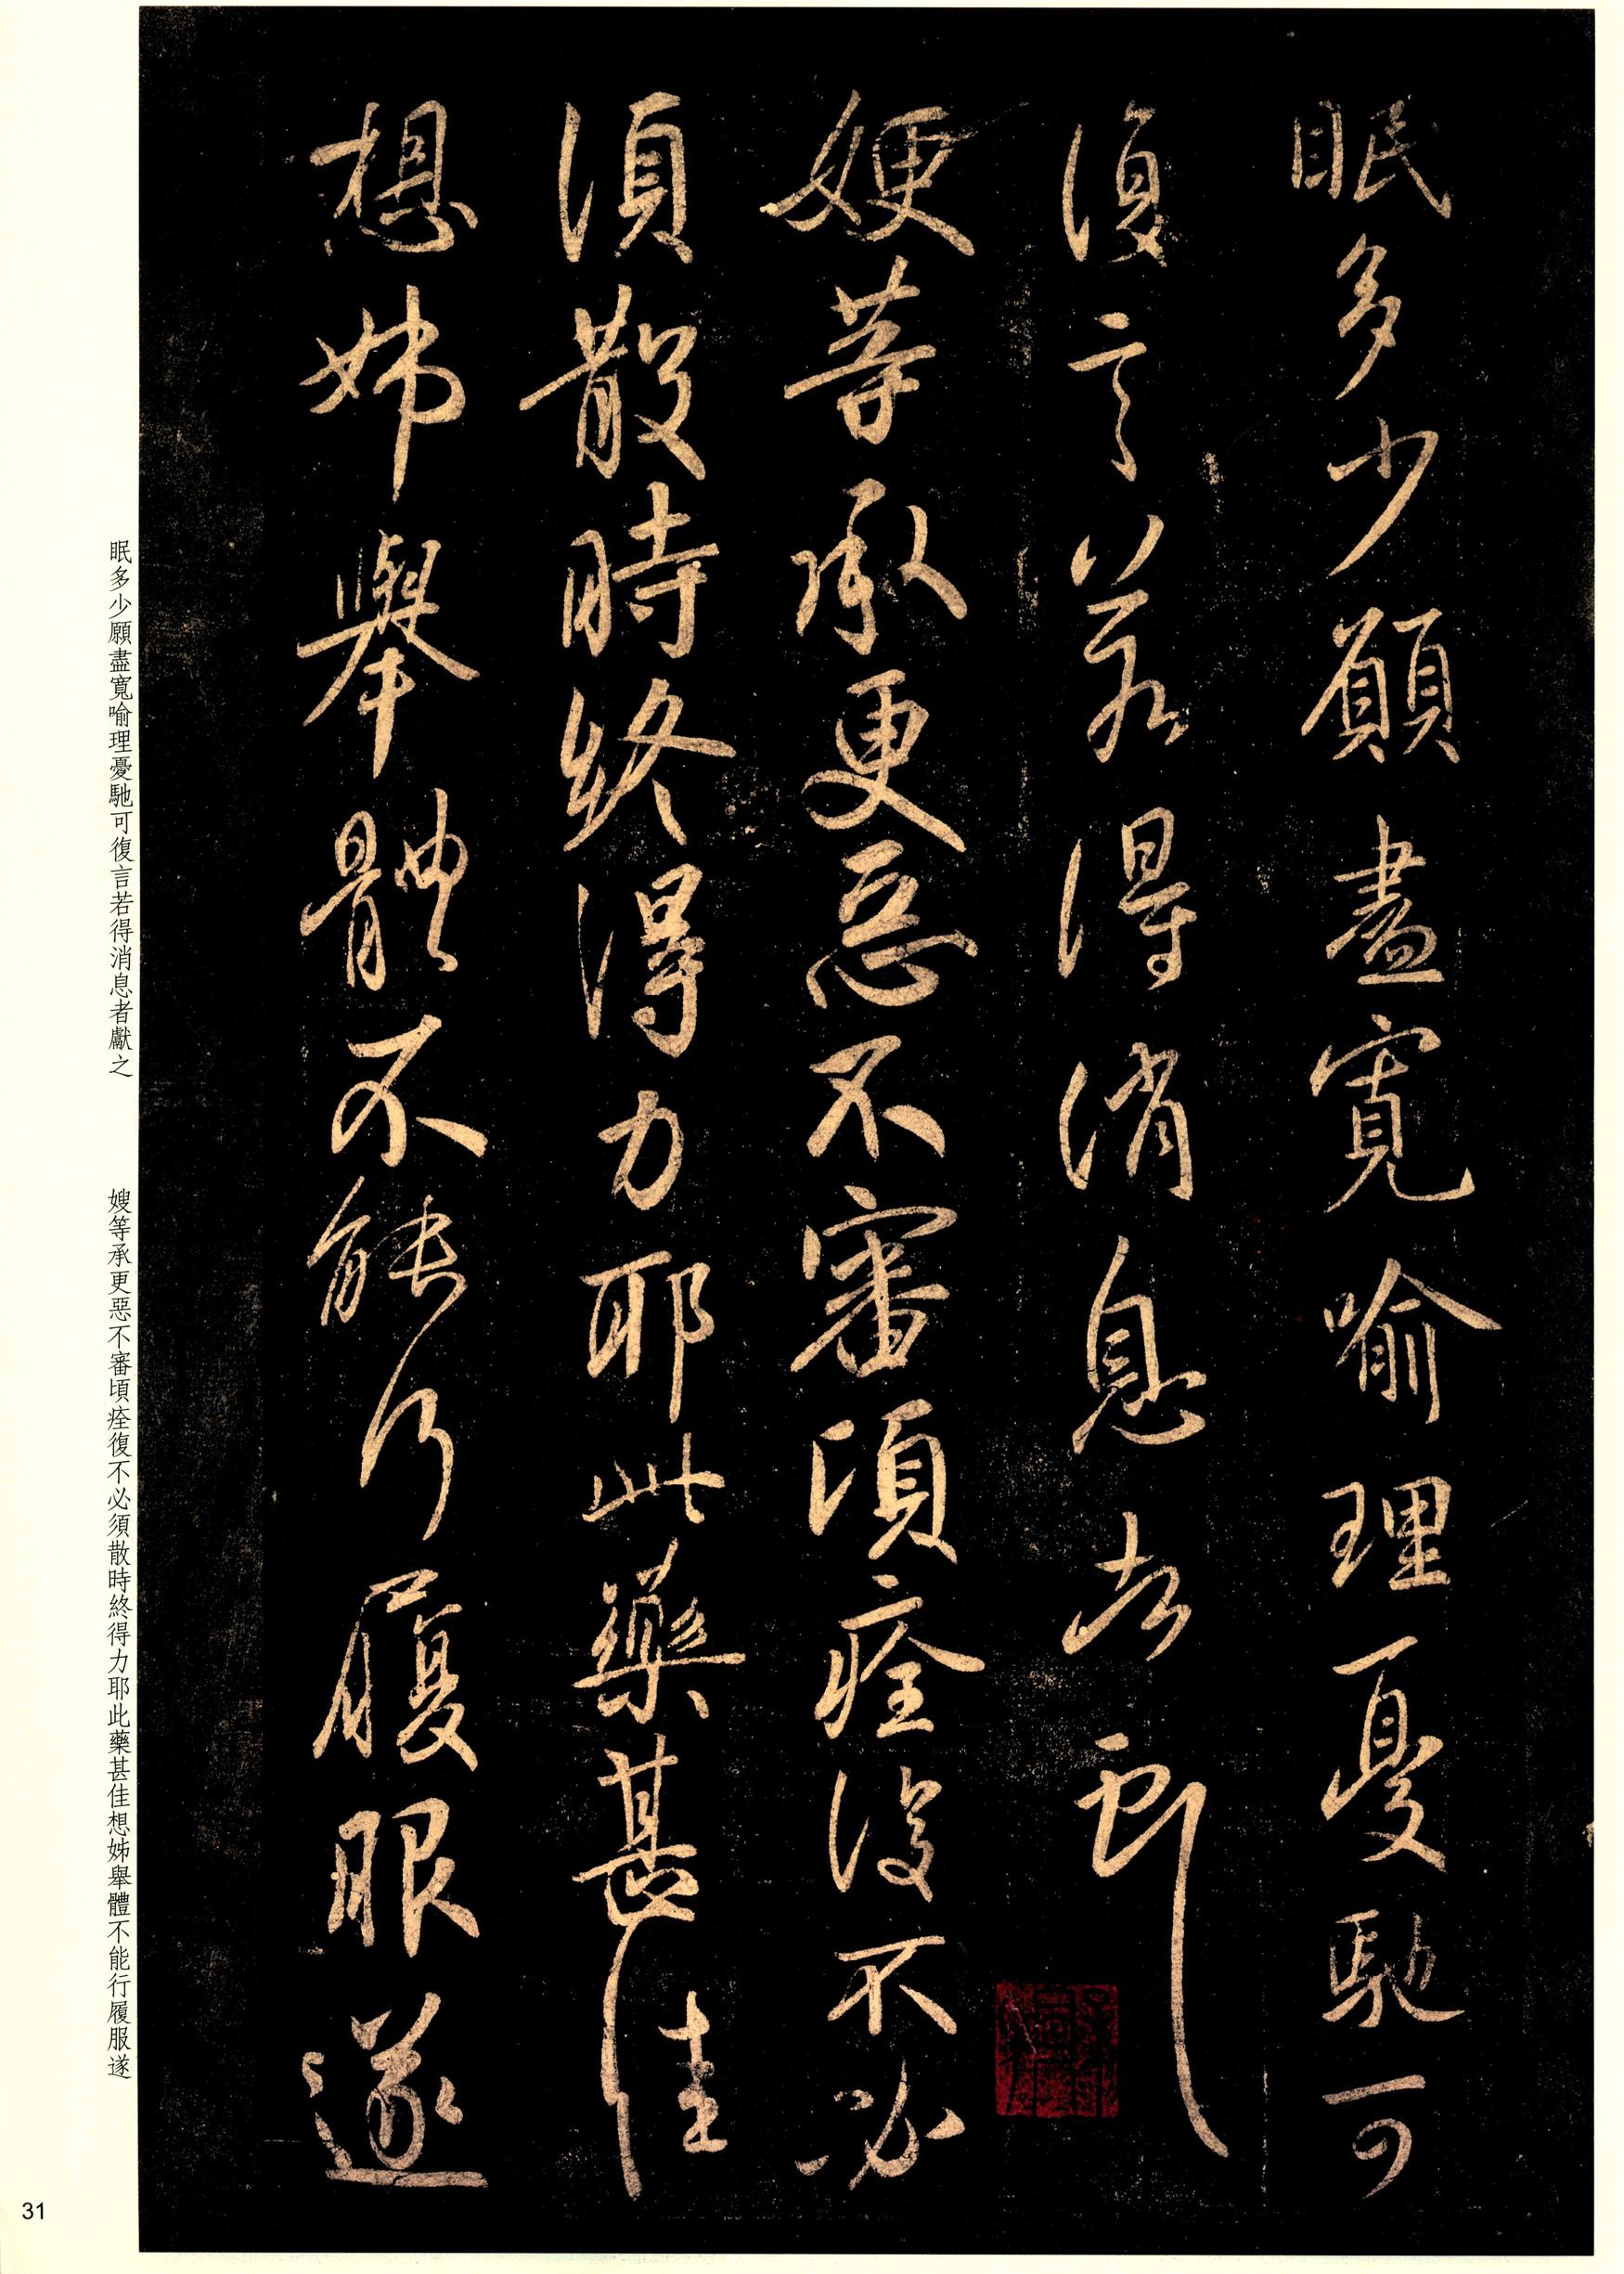 眠多少願盡寬喻理憂馳可
復言若得消息者獻之
嫂等承更惡不審頃痊復不必
須散時終得力耶此藥甚佳
想姊舉體不能行履眼遂
眠多少願盡寬喻理憂馳可復言若得消息者獻之
嫂等承更惡不審頃痊復不必須散時終得力耶此藥甚佳想姊舉體不能行履服遂
31